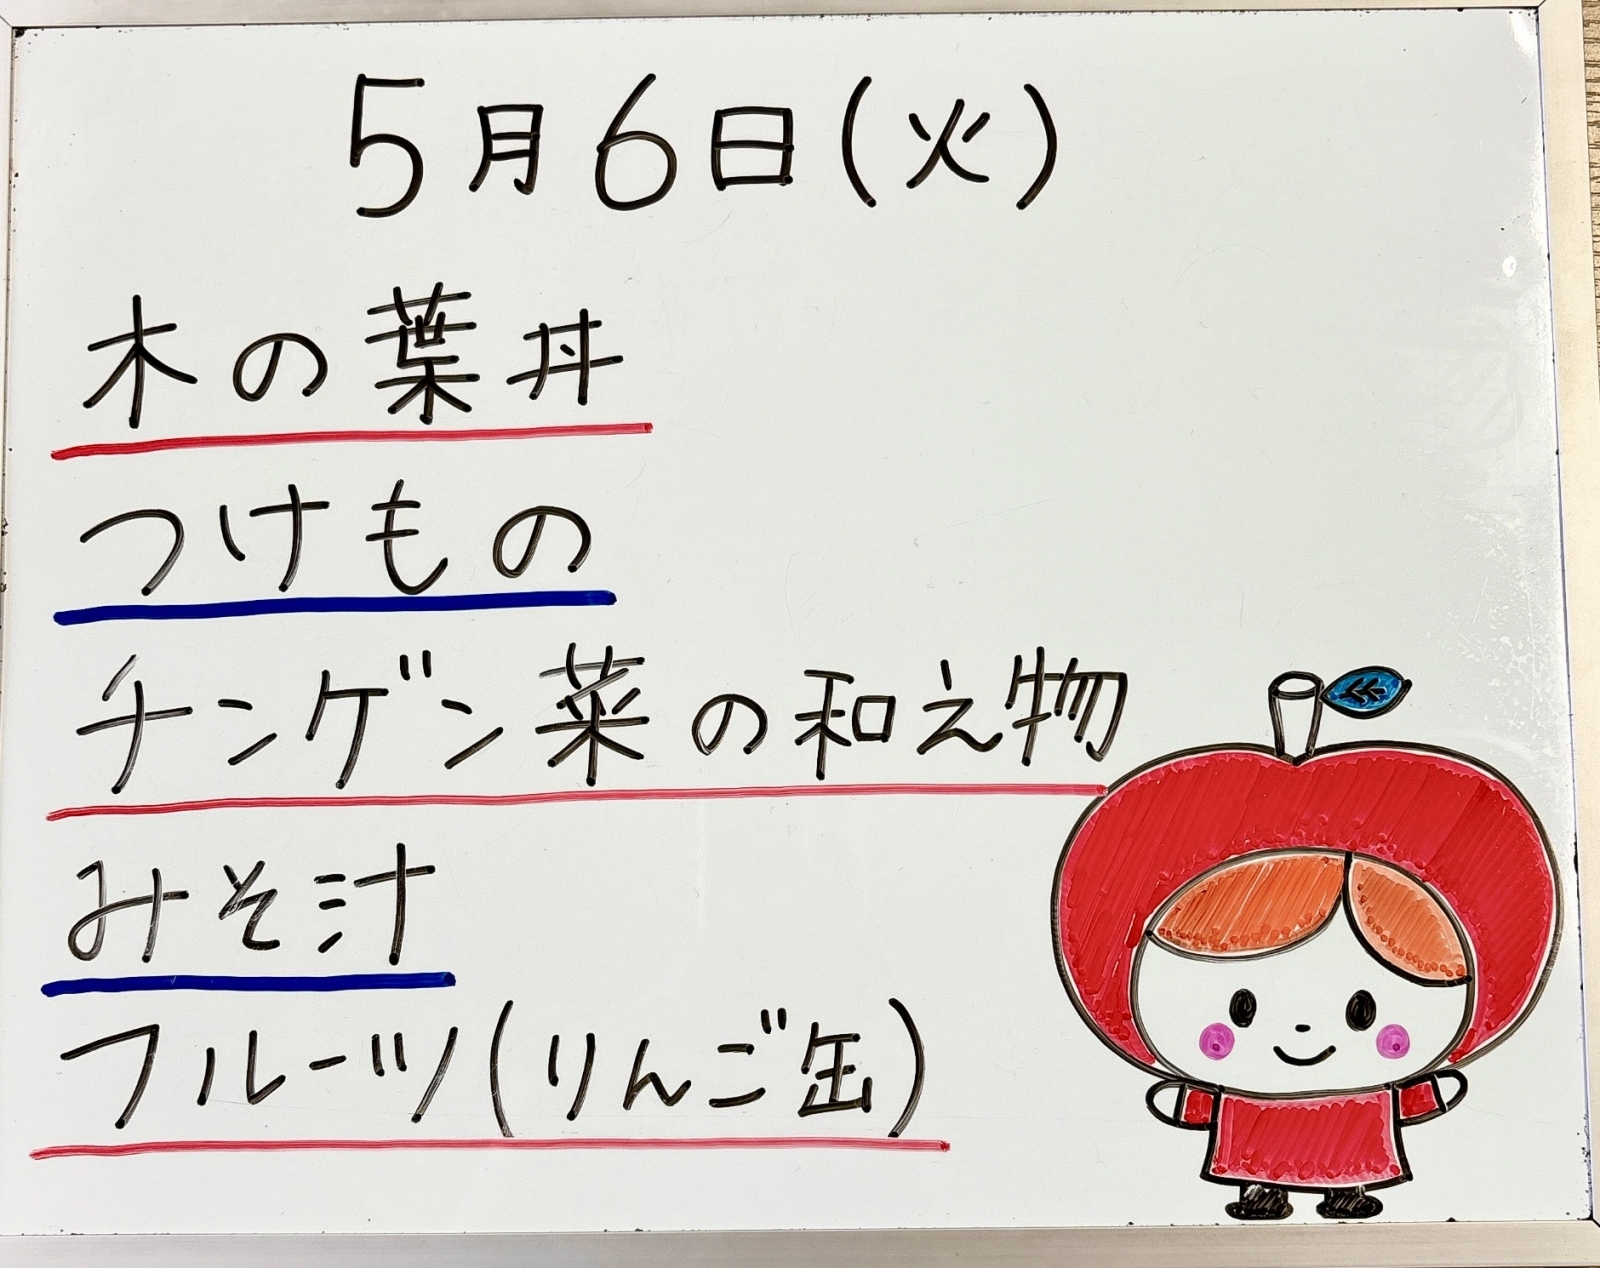 5月6日(火)
木の葉丼
つけもの
チンゲン菜の和え物
みそ汁
フルーツ(りんご缶)